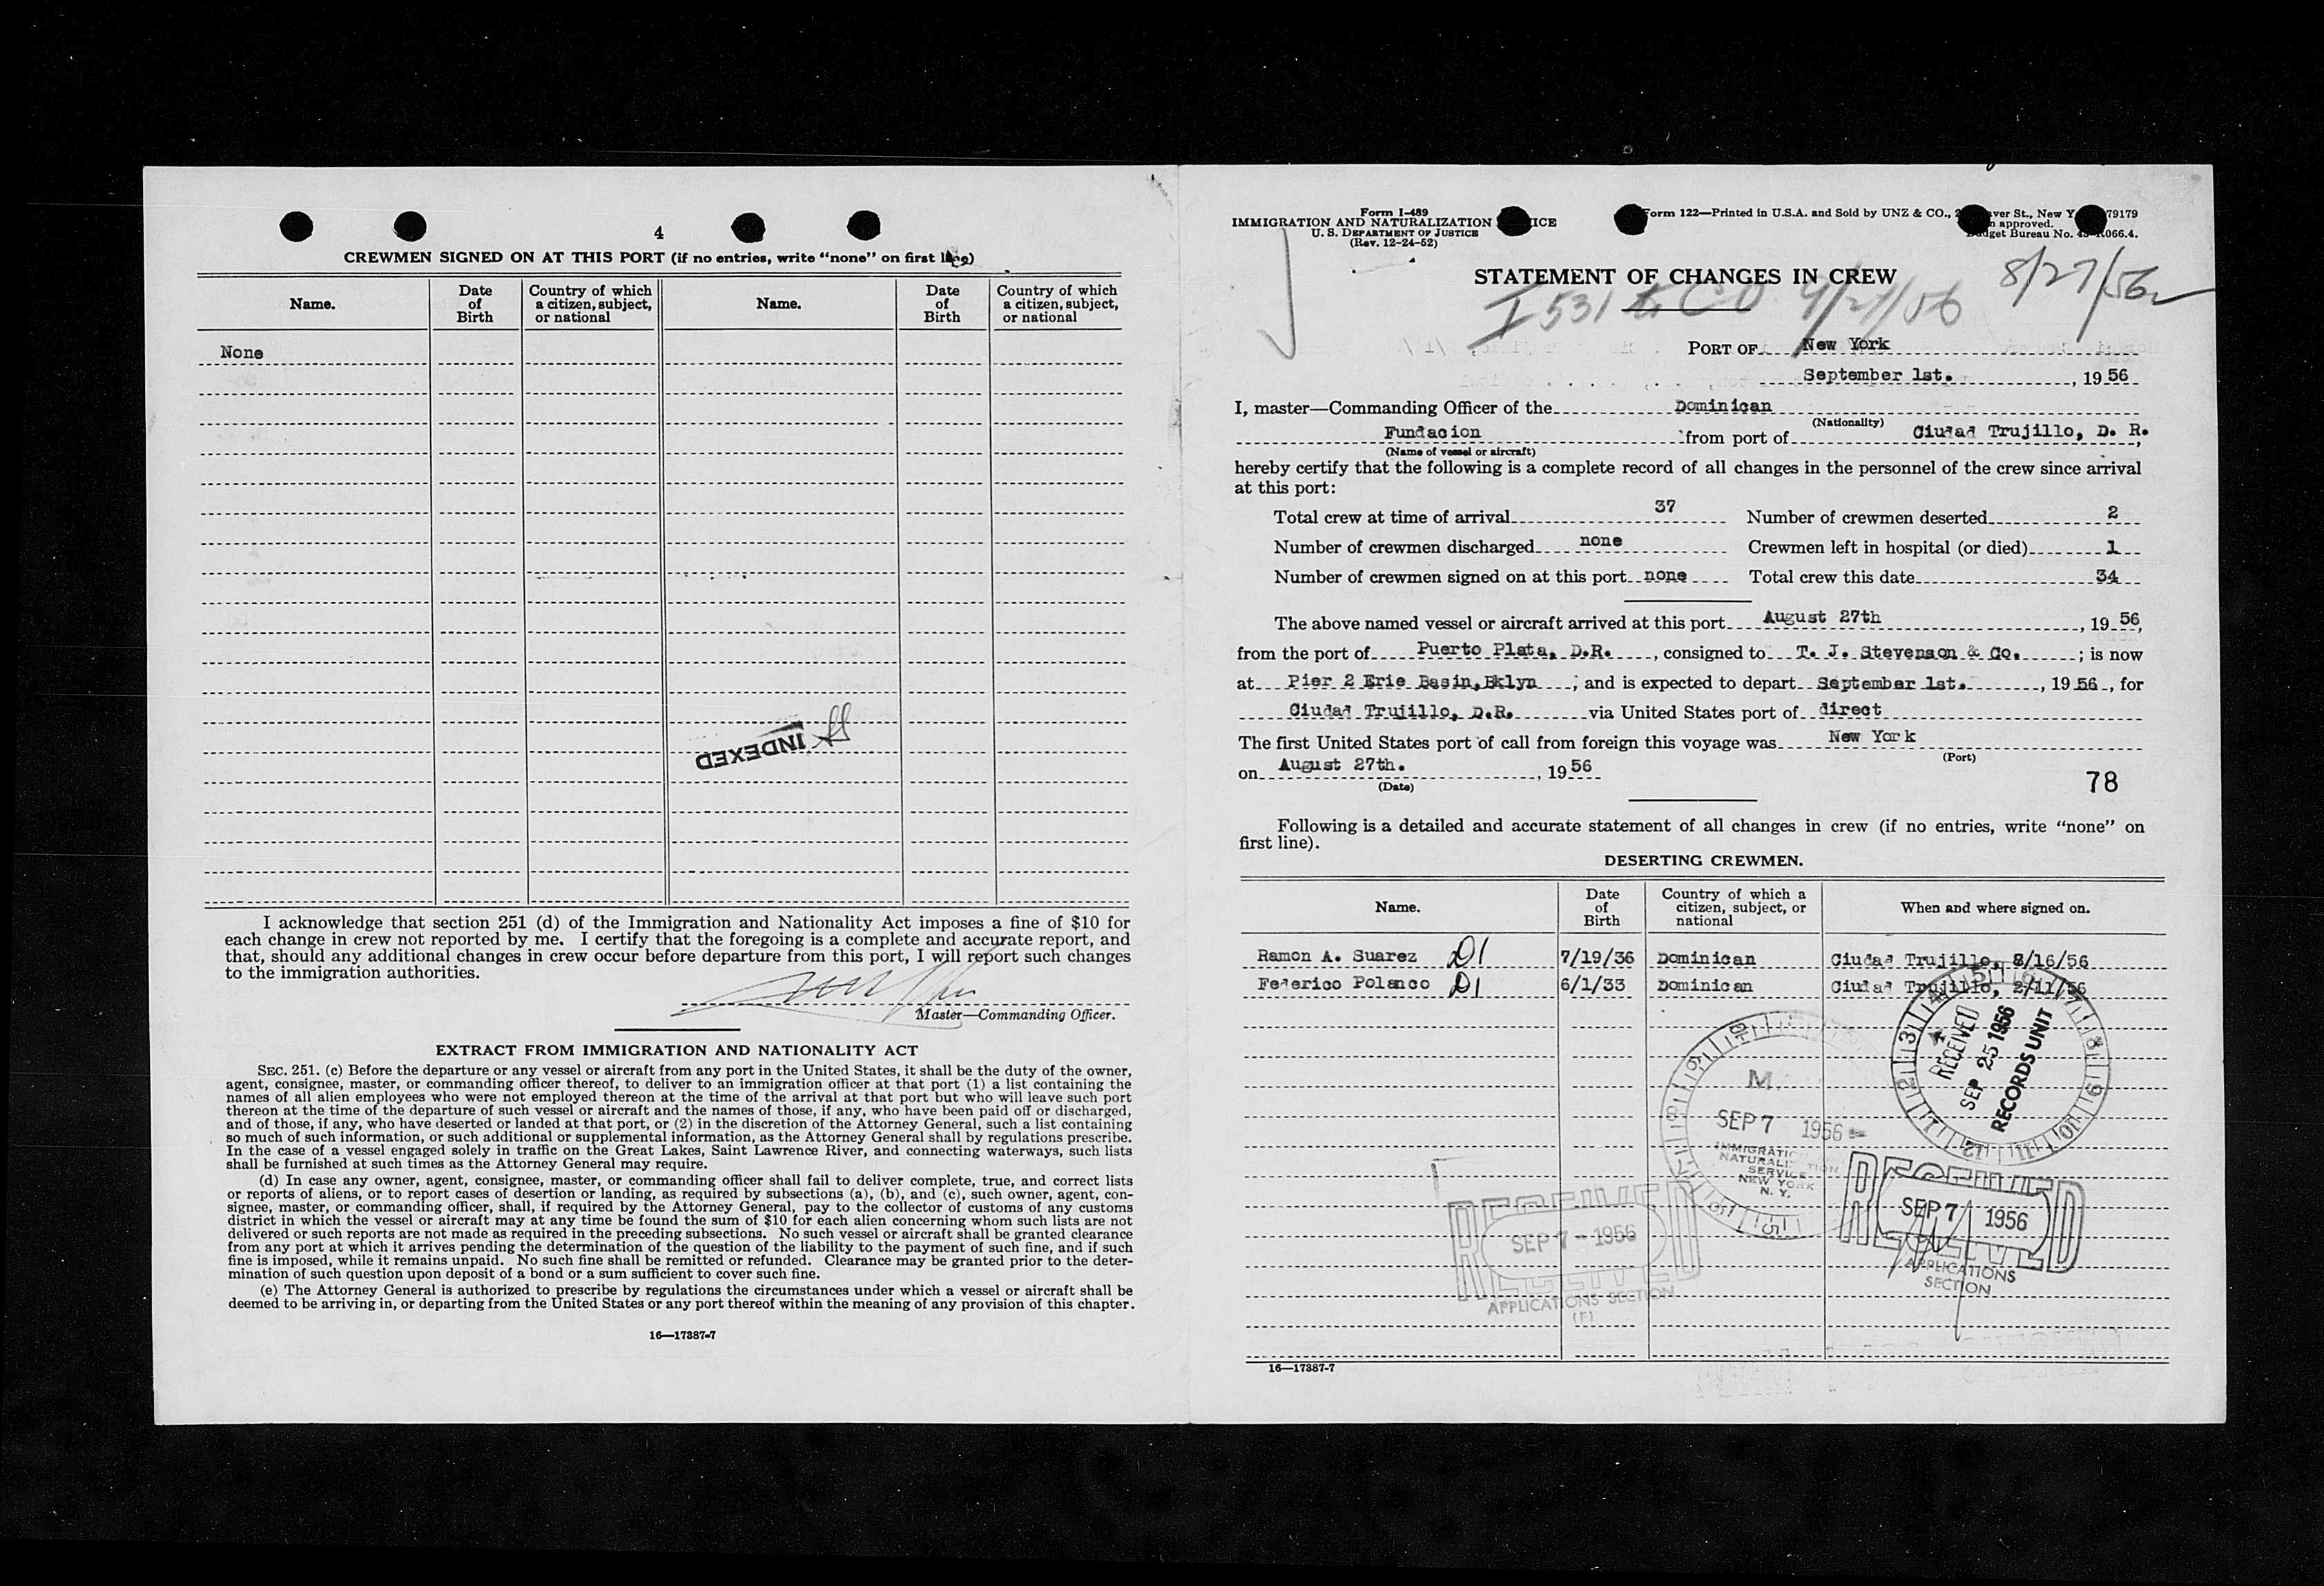 4
CREWMEN SIGNED ON AT THIS PORT (if no entries, write “none” on first line)
Name. Date of Birth Country of which a citizen, subject, or national Name. Date of Birth Country of which a citizen, subject, or national
None
INDEXED
I acknowledge that section 251 (d) of the Immigration and Nationality Act imposes a fine of $10 for
each change in crew not reported by me. I certify that the foregoing is a complete and accurate report, and
that, should any additional changes in crew occur before departure from this port, I will report such changes
to the immigration authorities.
Master—Commanding Officer.
EXTRACT FROM IMMIGRATION AND NATIONALITY ACT
SEC. 251. (c) Before the departure or any vessel or aircraft from any port in the United States, it shall be the duty of the owner,
agent, consignee, master, or commanding officer thereof, to deliver to an immigration officer at that port (1) a list containing the
names of all alien employees who were not employed thereon at the time of the arrival at that port but who will leave such port
thereon at the time of the departure of such vessel or aircraft and the names of those, if any, who have been paid off or discharged,
and of those, if any, who have deserted or landed at that port, or (2) in the discretion of the Attorney General, such a list containing
so much of such information, or such additional or supplemental information, as the Attorney General shall by regulations prescribe.
In the case of a vessel engaged solely in traffic on the Great Lakes, Saint Lawrence River, and connecting waterways, such lists
shall be furnished at such times as the Attorney General may require.
(d) In case any owner, agent, consignee, master, or commanding officer shall fail to deliver complete, true, and correct lists
or reports of aliens, or to report cases of desertion or landing, as required by subsections (a), (b), and (c), such owner, agent, con-
signee, master, or commanding officer, shall, if required by the Attorney General, pay to the collector of customs of any customs
district in which the vessel or aircraft may at any time be found the sum of $10 for each alien concerning whom such lists are not
delivered or such reports are not made as required in the preceding subsections. No such vessel or aircraft shall be granted clearance
from any port at which it arrives pending the determination of the question of the liability to the payment of such fine, and if such
fine is imposed, while it remains unpaid. No such fine shall be remitted or refunded. Clearance may be granted prior to the deter-
mination of such question upon deposit of a bond or a sum sufficient to cover such fine.
(e) The Attorney General is authorized to prescribe by regulations the circumstances under which a vessel or aircraft shall be
deemed to be arriving in, or departing from the United States or any port thereof within the meaning of any provision of this chapter.
16—17387-7
Form I-489
IMMIGRATION AND NATURALIZATION
U. S. DEPARTMENT OF JUSTICE
(Rev. 12-24-52)
Form 122—Printed in U.S.A. and Sold by UNZ & CO., New Y 79179
approved.
Budget Bureau No. 066.4.
STATEMENT OF CHANGES IN CREW
8/27/56
I 531 to CO 9/21/56
PORT OF New York
September 1st. , 19 56
I, master—Commanding Officer of the Dominican
(Nationality)
Fundacion from port of Ciudad Trujillo, D. R.
(Name of vessel or aircraft)
hereby certify that the following is a complete record of all changes in the personnel of the crew since arrival
at this port:
Total crew at time of arrival 37 Number of crewmen deserted 2
Number of crewmen discharged none Crewmen left in hospital (or died) 1
Number of crewmen signed on at this port none Total crew this date 34
The above named vessel or aircraft arrived at this port August 27th , 19 56,
from the port of Puerto Plata, D.R. , consigned to T. J. Stevenson & Co. ; is now
at Pier 2 Erie Basin,Bklyn ; and is expected to depart September 1st. , 19 56 , for
Ciudad Trujillo, D.R. via United States port of direct
The first United States port of call from foreign this voyage was New York
(Port)
on August 27th. , 19 56
(Date)
78
Following is a detailed and accurate statement of all changes in crew (if no entries, write “none” on
first line).
DESERTING CREWMEN.
Name. Date of Birth Country of which a citizen, subject, or national When and where signed on.
Ramon A. Suarez D1 7/19/36 Dominican Ciudad Trujillo, 8/16/56
Federico Polanco D1 6/1/33 Dominican Ciudad Trujillo, 2/11/56
RECEIVED
SEP 25 1956
RECORDS UNIT
M.
SEP 7 1956
IMMIGRATION
NATURALIZATION
SERVICE
NEW YORK
N. Y.
RECEIVED
SEP 7 1956
APPLICATIONS
SECTION
RECEIVED
SEP 7 - 1956
APPLICATIONS SECTION
(F)
16—17387-7